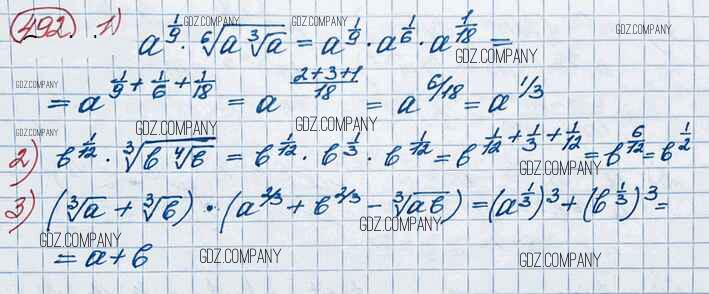 492. 1) a^{1/9} · ⁶√(a ³√a) = a^{1/9} · a^{1/6} · a^{1/18} =
= a^{1/9 + 1/6 + 1/18} = a^{(2+3+1)/18} = a^{6/18} = a^{1/3}
2) b^{1/12} · ³√(b ⁴√b) = b^{1/12} · b^{1/3} · b^{1/12} = b^{1/12 + 1/3 + 1/12} = b^{6/12} = b^{1/2}
3) (³√a + ³√b) · (a^{2/3} + b^{2/3} − ³√(ab)) = (a^{1/3})³ + (b^{1/3})³ =
= a + b
GDZ.COMPANY
GDZ.COMPANY
GDZ.COMPANY
GDZ.COMPANY
GDZ.COMPANY
GDZ.COMPANY
GDZ.COMPANY
GDZ.COMPANY
GDZ.COMPANY
GDZ.COMPANY
GDZ.COMPANY
GDZ.COMPANY
GDZ.COMPANY
GDZ.COMPANY